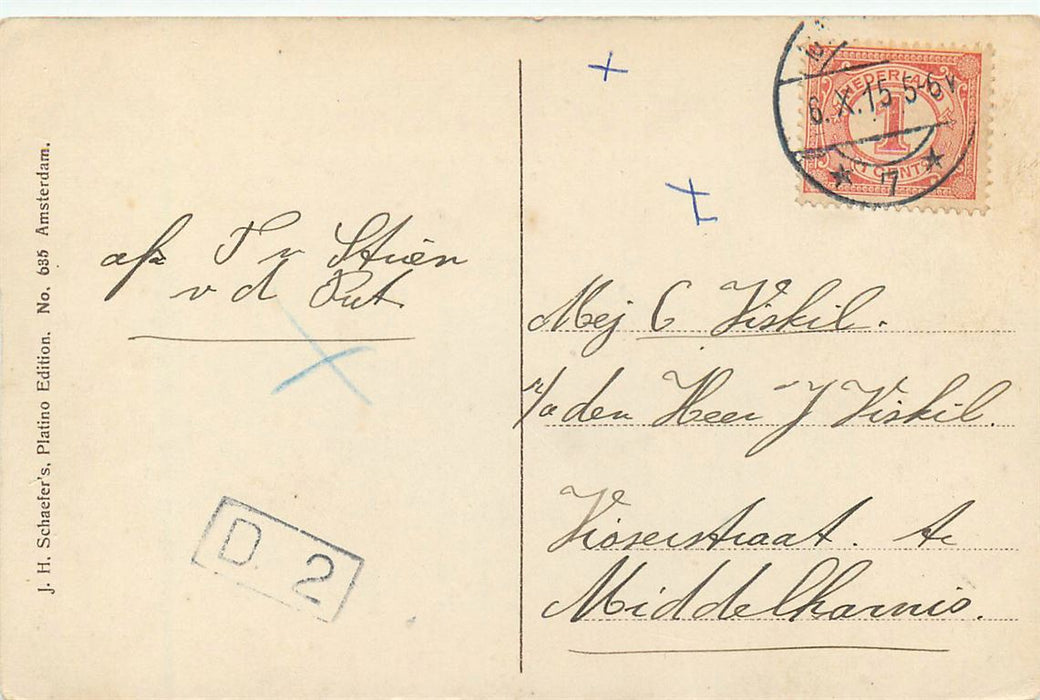 J. H. Schaefer's, Platino Edition. No. 635 Amsterdam.
afz v Stien
v d Put
D. 2
6.X.15 5-6V
7
NEDERLAND
1
CENT
Mej C Viskil.
p/a den Heer J Viskil.
Visserstraat. te
Middelharnis.